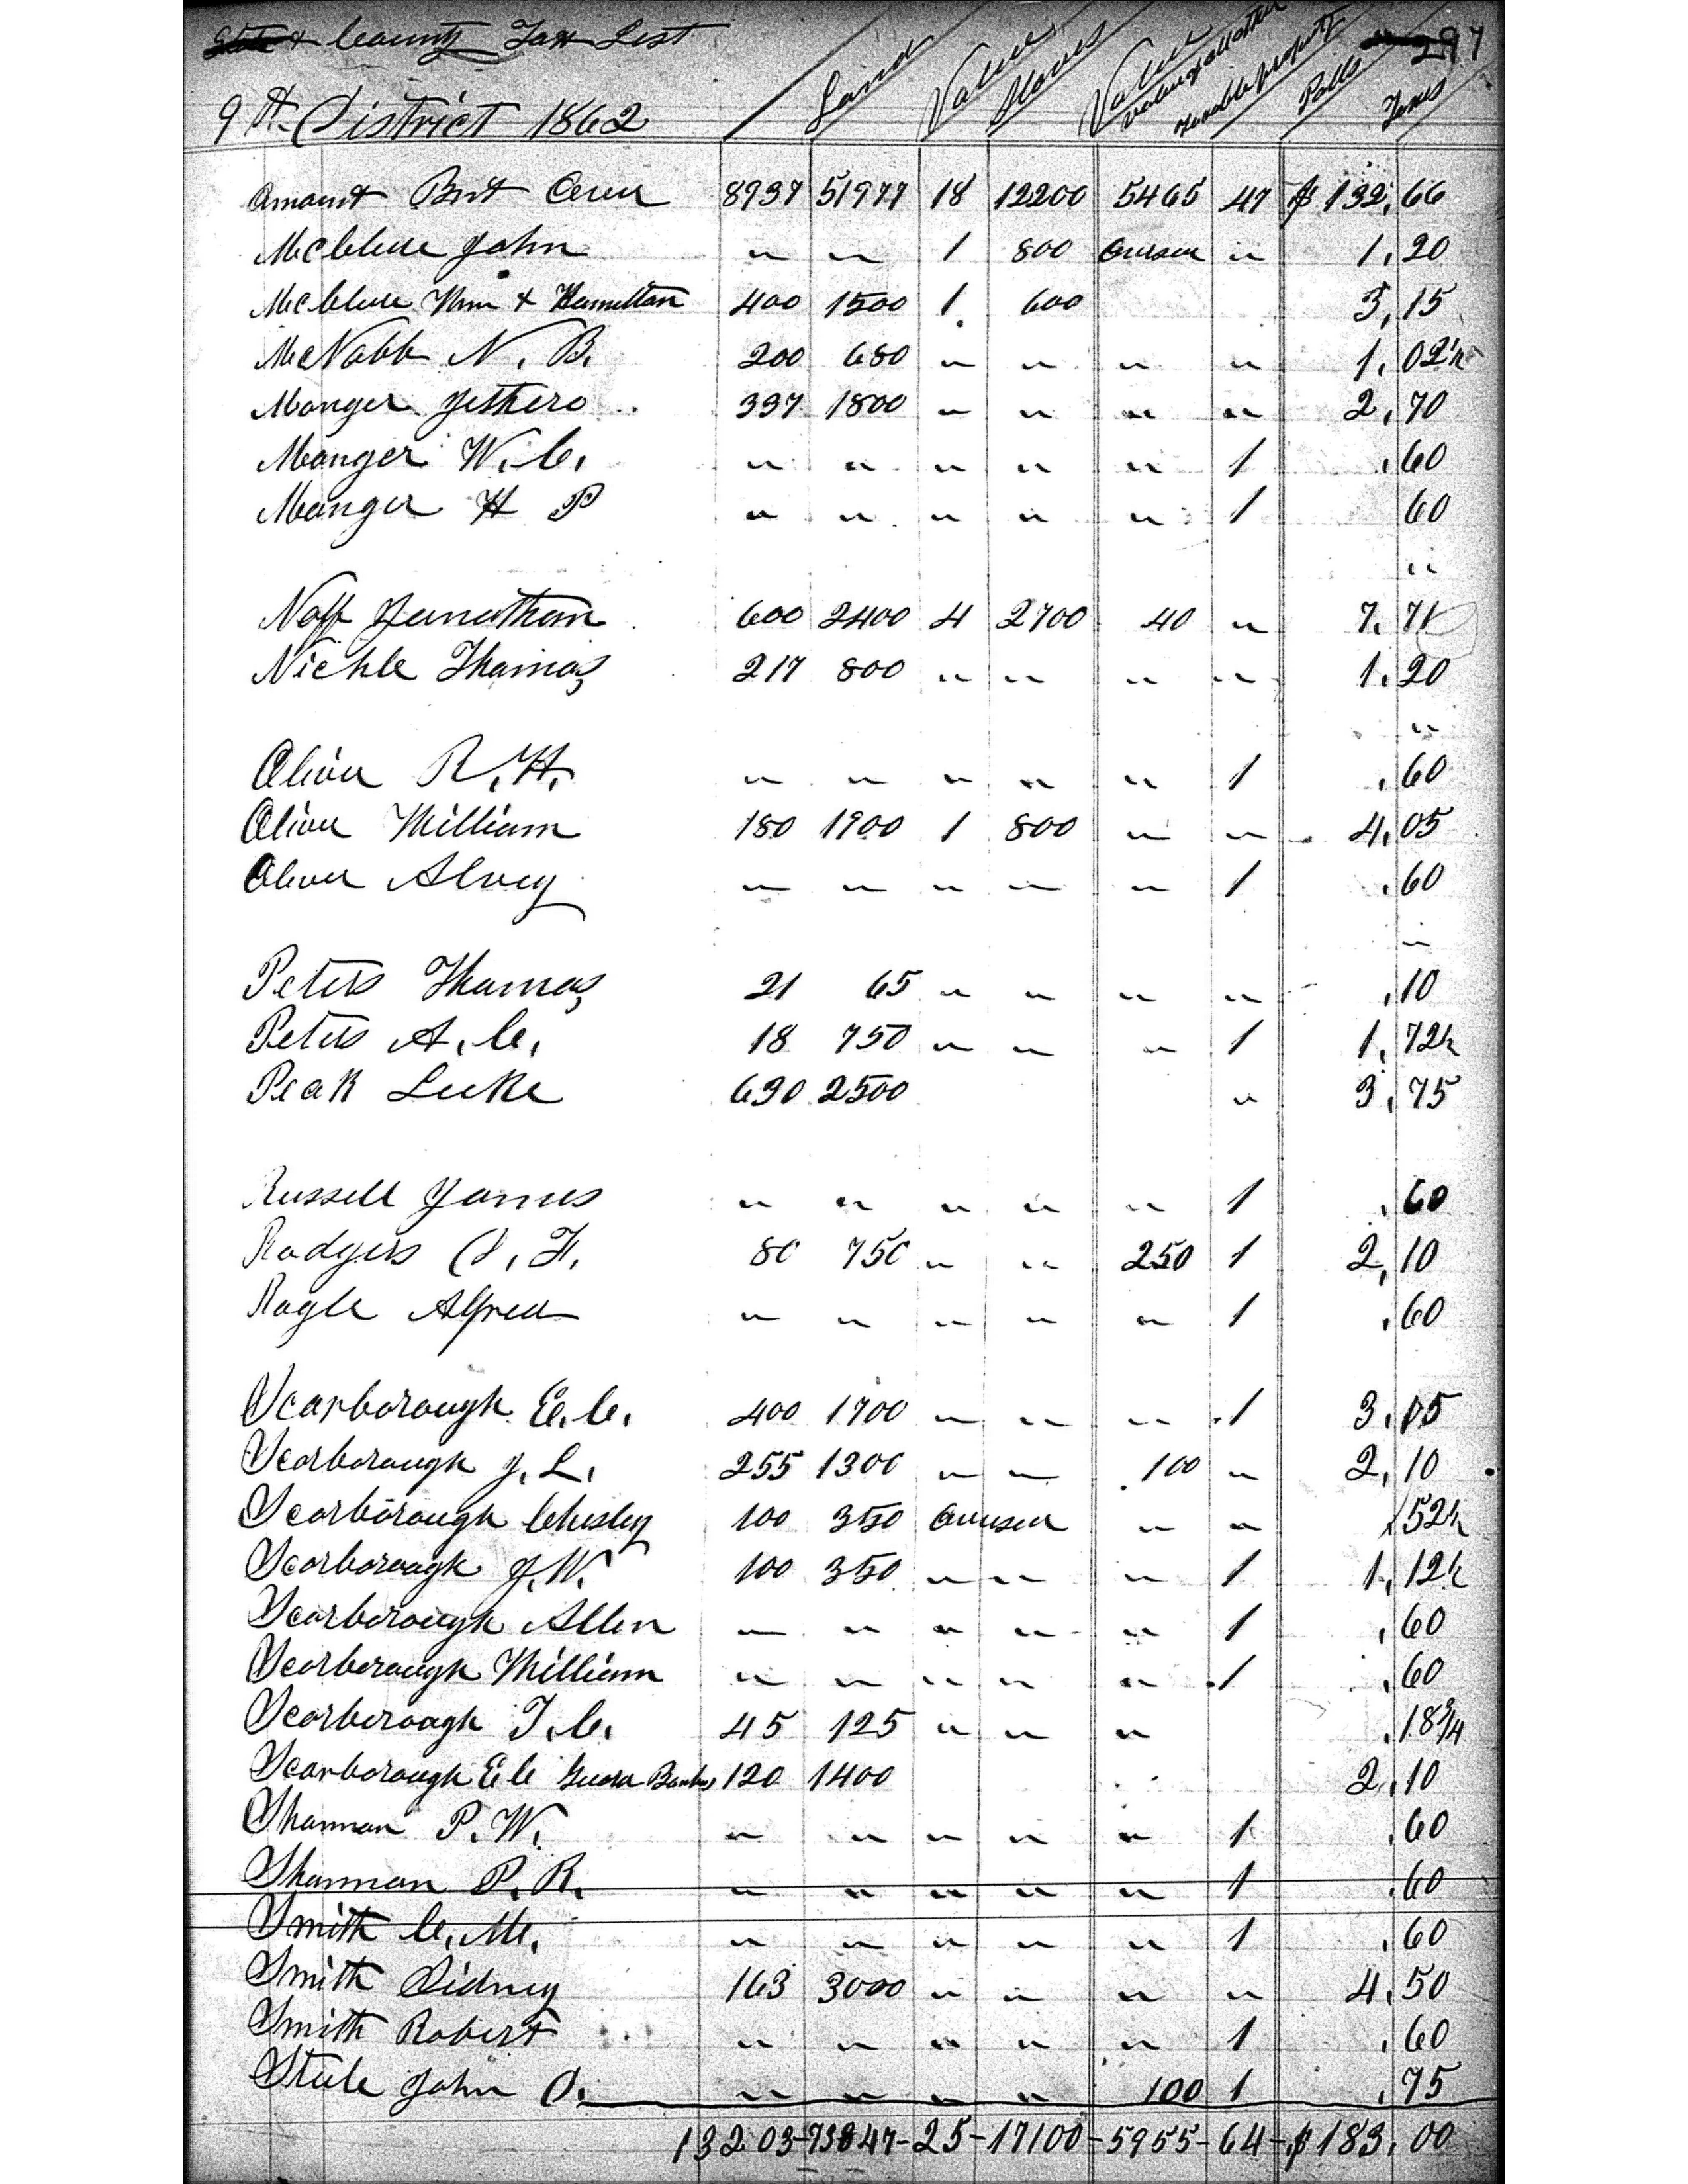 State & County Tax List 297
9th District 1862 Land Value Slaves Value value of all other taxable property Polls Taxes
Amount Brt Over 8937 51977 18 12200 5465 47 $ 132,66
McClure John " " 1 800 " 1,20
McClure Wm & Hamilton 400 1500 1 600 3,15
McNabb N. B. 200 680 " " " " 1,02½
Monger Jethero 337 1800 " " " " 2,70
Monger W. C. " " " " " 1 ,60
Monger H P " " " " " 1 60
"
Naff Jonathan 600 2400 4 2700 40 " 7,71
Nickle Thomas 217 800 " " " " 1,20
"
Oliver R. H. " " " " " 1 ,60
Oliver William 180 1900 1 800 " " 4,05
Oliver Alvey " " " " " 1 ,60
"
Peters Thomas 21 65 " " " " ,10
Peters A. C. 18 750 " " " 1 1,72½
Peak Luke 630 2500 " 3,75
Russell James " " " " " 1 ,60
Rodgers F. 80 750 " " 250 1 2,10
Ragle Alfred " " " " " 1 ,60
Scarborough E. C. 400 1700 " " " 1 3,15
Scarborough J. L. 255 1300 " " 100 " 2,10
Scarborough Chesley 100 350 " " ,52½
Scarborough J. W. 100 350 " " " 1 1,12½
Scarborough Allen " " " " " 1 ,60
Scarborough William " " " " " 1 ,60
Scarborough T. C. 45 125 " " " ,18¾
Scarborough E C 120 1400 2,10
Shannon P. W. " " " " " 1 ,60
Shannon P. R. " " " " " 1 ,60
Smith C. M. " " " " " 1 ,60
Smith Sidney 163 3000 " " " " 4,50
Smith Robert " " " " " 1 ,60
Steele John O. " " " " 100 1 ,75
13203-73847-25-17100-5955-64-$183,00